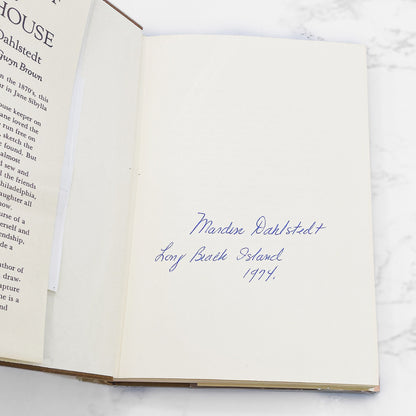 HOUSE
Dahlstedt
Gwyn Brown
n the 1870's, this
ur in Jane Sibylla
ouse keeper on
ane loved the
run free on
sketch the
e found. But
almost
sew and
d the friends
hiladelphia,
aughter all
now.
urse of a
erself and
endship,
de a
author of
draw-
apture
ne is a
und
Mardien Dahlstedt
Long Beach Island
1974.